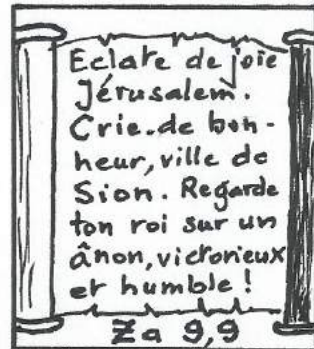 Eclate de joie
Jérusalem.
Crie de bon-
heur, ville de
Sion. Regarde
ton roi sur un
ânon, victorieux
et humble !
Za 9,9